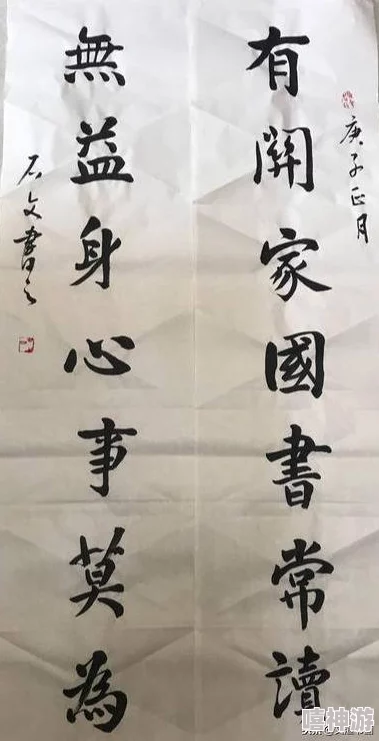 有關家國書常讀
庚子正月
無益身心事莫為
石文書之
嘻神游